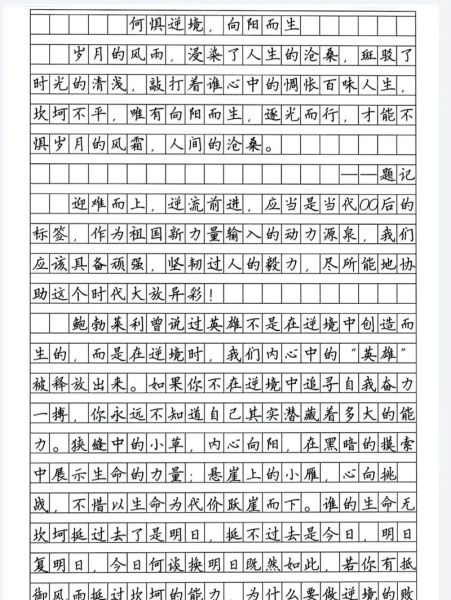 何惧逆境，向阳而生
岁月的风雨，浸染了人生的沧桑，斑驳了
时光的清浅，敲打着谁心中的惆怅百味人生，
坎坷不平，唯有向阳而生，逐光而行，才能不
惧岁月的风霜，人间的沧桑。
——题记
迎难而上，逆流前进，应当是当代00后的
标签，作为祖国新力量输入的动力源泉，我们
应该具备顽强，坚韧过人的毅力，尽所能地协
助这个时代大放异彩！
鲍勃莱利曾说过英雄不是在逆境中创造而
生的，而是在逆境时，我们内心中的“英雄”
被释放出来。如果你不在逆境中追寻自我奋力
一搏，你永远不知道自己其实潜藏着多大的能
力。狭缝中的小草，内心向阳，在黑暗的摸索
中展示生命的力量；悬崖上的小雁，心向挑
战，不惜以生命为代价跃崖而下。谁的生命无
坎坷挺过去了是明日，挺不过去是今日，明日
复明日，今日何谈换明日既然如此，若你有抵
御风雨挺过坎坷的能力，为什么要做逆境的败